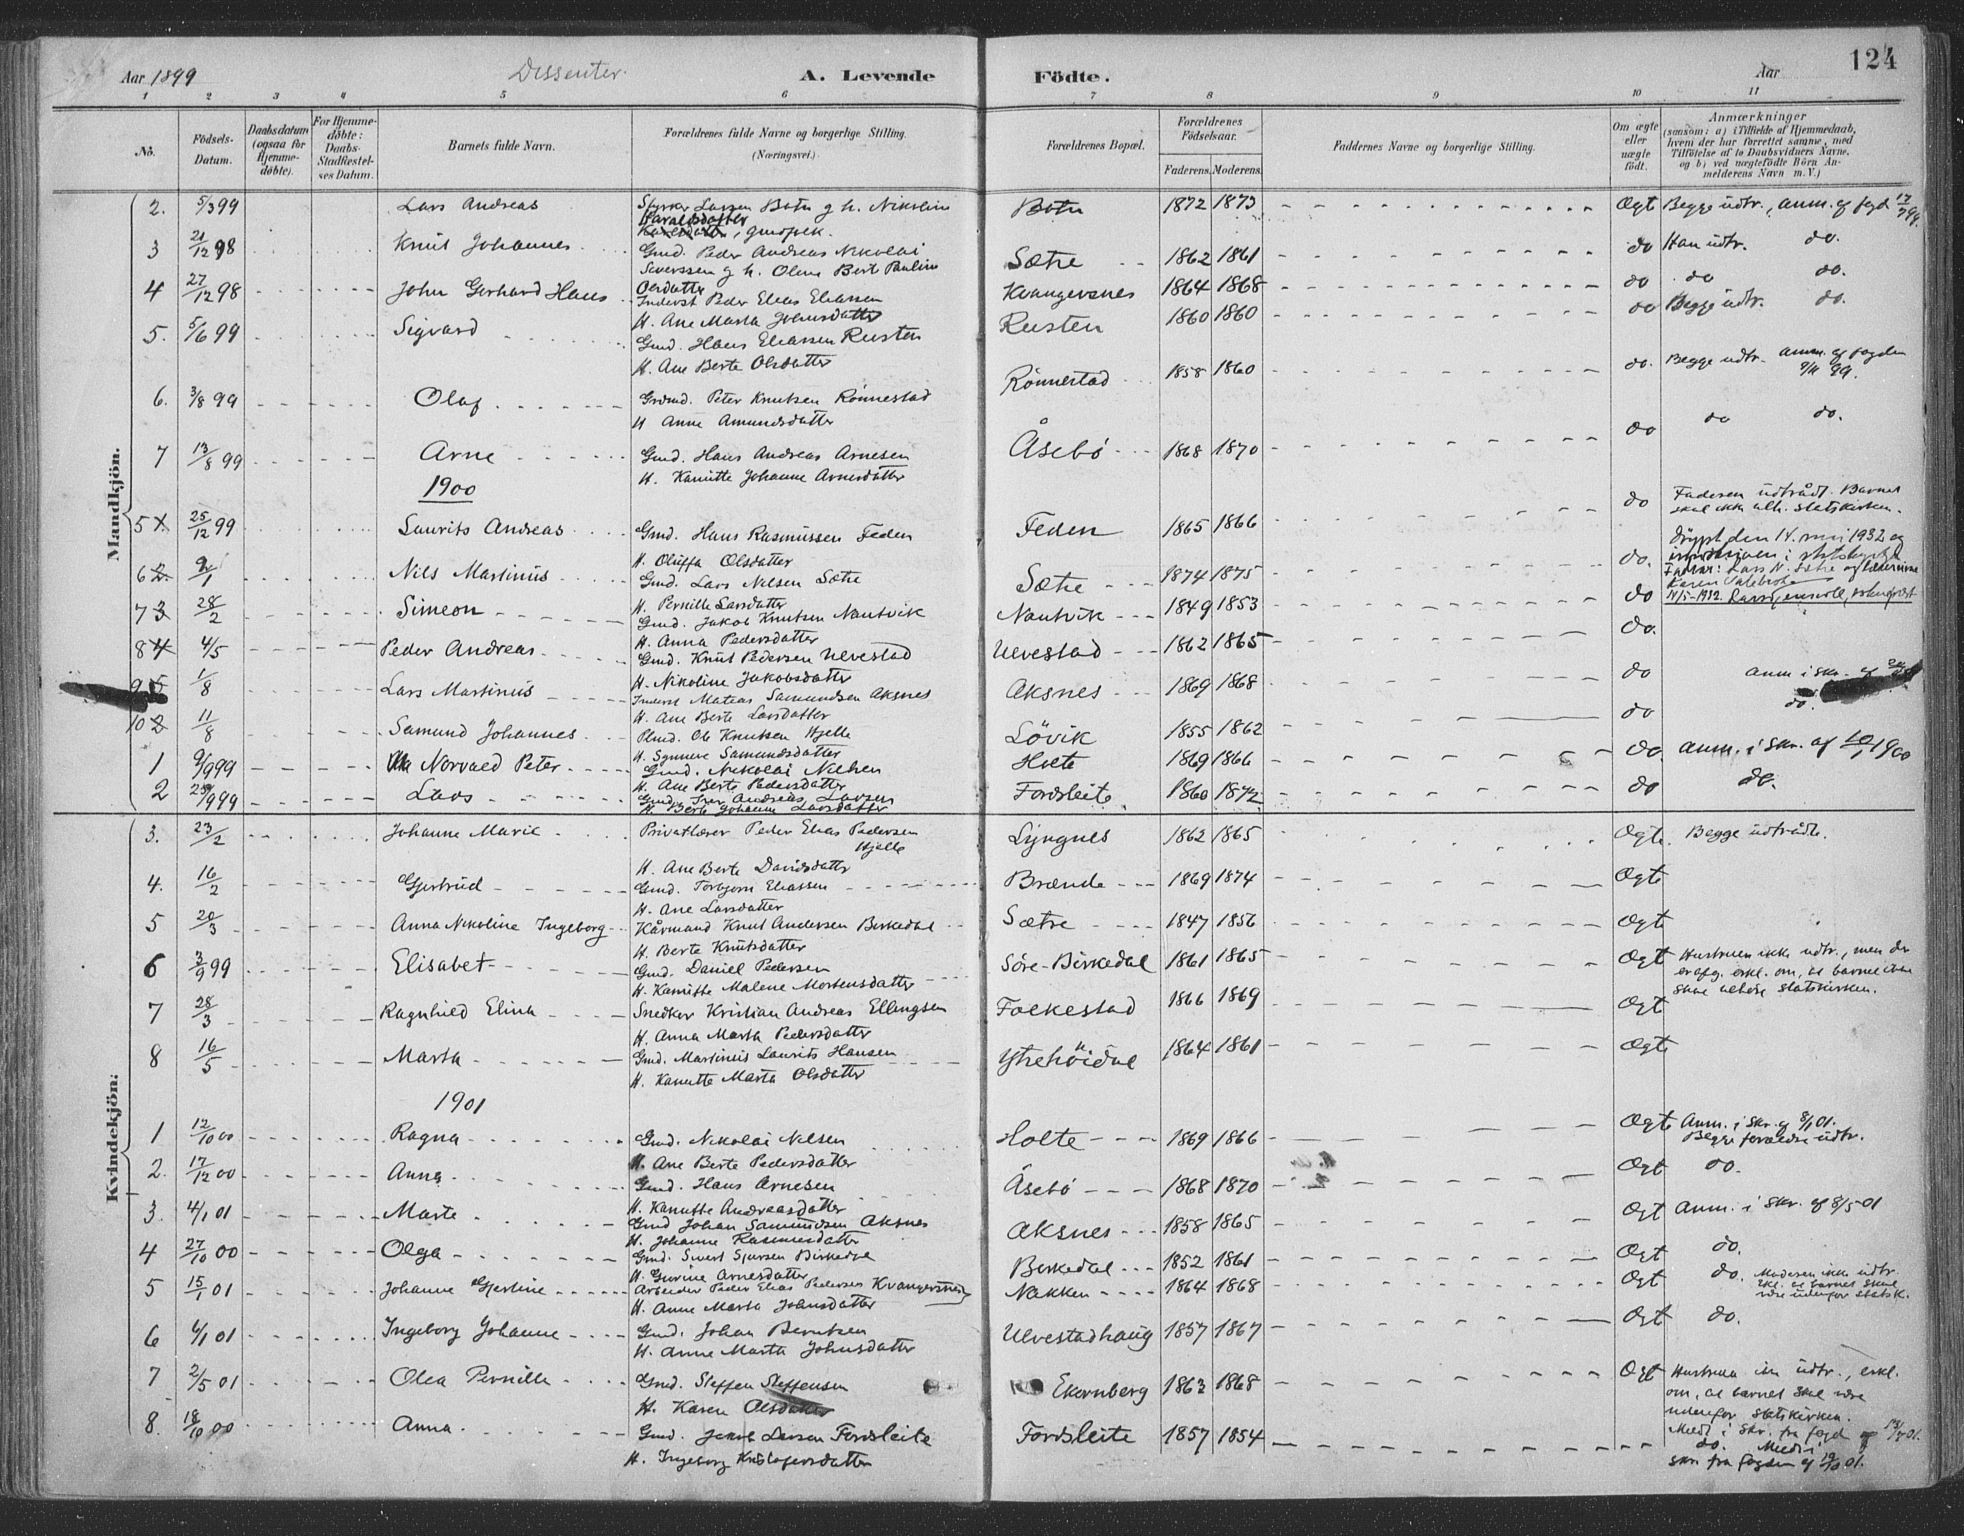 Aar 1899 Dissenter. A. Levende Födte. Aar 124
1 2 3 4 5 6 7 8 9 10 11
No. Födsels-Datum. Daabsdatum (ogsaa for Hjemme-döbte). For Hjemme-döbte: Daabs-Stadfæstel-ses Datum. Barnets fulde Navn. Forældrenes fulde Navne og borgerlige Stilling. (Næringsvei.) Forældrenes Bopæl. Forældrenes Födselsaar. Faderens. Moderens. Faddernes Navne og borgerlige Stilling. Om ægte eller uægte födt. Anmærkninger (saasom: a) i Tilfælde af Hjemmedaab, hvem der har forrettet samme, med Tilföielse af to Daabsvidners Navne, og b) ved uægtefödte Börn An-melderens Navn m. V.)
Mandkjön.
2. 5/3 99 Lars Andreas Styrker Larsen Botn g h. Nikoline Haraldsdatter, gmdspek. Botn 1872 1873 Ægt Begge udtr., anm. af fogd 17/7 99.
3 21/12 98 Knut Johannes Gmd. Peder Andreas Nikolai Siverssen g h. Oline Berte Pauline Olsdatter Sætre 1862 1861 do Han udtr. do.
4 27/12 98 John Gerhard Hans Inderst Peder Elias Eliassen
H. Ane Marta Johnsdatter Kvangersnes 1864 1868 do do do.
5. 5/6 99 Sigvard Gmd. Hans Eliassen Rusten
H. Ane Berte Olsdatter Rusten 1860 1860 do Begge udtr. do.
6. 3/8 99 Olaf Grdmd. Peter Knutsen Rönnestad
H Anne Amundsdatter Rönnestad 1858 1860 do. Begge udtr. anm. af fogden 9/11 99.
7 13/8 99 Arne Gmd. Hans Andreas Arnesen
H. Kanutte Johanne Arnesdatter Åsebö 1868 1870 do do do.
1900
5 1 25/12 99 Laurits Andreas Gmd. Hans Rasmussen Feden
H. Oluffa Olsdatter Feden 1865 1866 do Faderen udtrådt. Barnet skal ikke tilh. statskirken.
6 2. 9/1 Nils Martinus Gmd. Lars Nilsen Sætre
H. Pernille Larsdatter Sætre 1874 1875 do. Döypt den 14. mai 1932 og
14/5-1932.
7 3 28/2 Simeon Gmd. Jakob Knutsen Nautvik
H. Anna Pedersdatter Nautvik 1849 1853 do
8 4 4/5 Peder Andreas Gmd. Knut Pedersen Ulvestad
H. Nikoline Jakobsdatter Ulvestad 1862 1865 do.
9 5 1/8 Lars Martinus Inderst Matias Samundsen Aksnes
H. Ane Berte Larsdatter Aksnes 1869 1868 do Anm i skr. af
10 2 11/8 Samund Johannes Plmd. Ole Knutsen Hjelle
H. Synneve Samundsdatter Lövik 1855 1862 do do.
1 9/9 99 Norvald Peter Gmd. Nikolai Nilsen
H. Ane Berte Pedersdatter Holte 1869 1866 do. anm. i skr. af 10/1 1900
2 23/9 99 Lars Gmd. Iver Andreas Larsen
H. Berte Johanne Larsdatter Fordsleite 1860 1872 do do.
Kvindekjön:
3. 23/2 Johanne Marie Privatlærer Peder Elias Pedersen Hjelle
H. Ane Berte Davidsdatter Lyngnes 1862 1865 Ægte. Begge udtrådte.
4. 16/2 Gjertrud Gmd. Torbjørn Eliassen
H. Ane Larsdatter Brænde 1869 1874 Ægte
5 20/3 Anna Nikoline Ingeborg Kårmand Knut Andersen Birkedal
H. Berte Knutsdatter Sætre 1847 1856 Ægte
6 3/9 99 Elisabet Gmd. Daniel Pedersen
H. Kanutte Malene Mortensdatter Söre-Birkedal 1861 1865 Ægt Hustruen ikke udtr., men der er afg. erkl. om, at barnet ikke skal tilhøre statskirken.
7 28/3 Ragnhild Elina Snedker Kristian Andreas Ellingsen
H. Anna Marta Pedersdatter Folkestad 1866 1869 Ægt
8 16/5 Marta Gmd. Martinus Laurits Hansen
H. Kanutte Marta Olsdatter Ytrehöidal 1864 1861 Ægte
1901
1 12/10 00 Ragna Gmd. Nikolai Nilsen
H. Ane Berte Pedersdatter Holte 1869 1866 Ægte Anm. i skr. af 8/1 01. Begge forældre udtr.
2. 17/12 00 Anna Gmd. Hans Arnesen
H. Kanutte Andreasdatter Åsebö 1868 1870 Ægt do.
3. 4/1 01 Marte Gmd Johan Samundsen Aksnes
H. Johanne Rasmusdatter Aksnes 1858 1865 Ægt Anm. i skr. af 8/5 01
4 27/10 00 Olga Gmd. Sivert Sjursen Birkedal
H. Gurine Arnesdatter Birkedal 1852 1861 Ægt do.
5 15/1 01 Johanne Gjertine Arbeider Peder Elias Pedersen Kvangersnes
H. Anne Marta Johnsdatter Nakken 1864 1868 Ægt do. Moderen ikke udtr. Erkl. at barnet skal være udenfor statsk.
6 4/1 01 Ingeborg Johanne Gmd. Johan Berntsen
H. Anne Marta Johnsdatter Ulvestadhaug 1857 1867 Ægt do.
7 2/5 01 Olea Pernille Gmd. Steffen Steffensen
H. Karen Olsdatter Ekornberg 1863 1868 Ægt Hustrua ikke udtr., erkl. om, at barnet skal være udenfor statskirken. Medd i skr. fra fogd af 13/7 01.
8. 18/10 00 Anna Gmd. Jakob Larsen Fordsleite
H. Ingeborg Kristofersdatter Fordsleite 1857 1854 do. Medd i skr. fra fogden af 19/10 01.